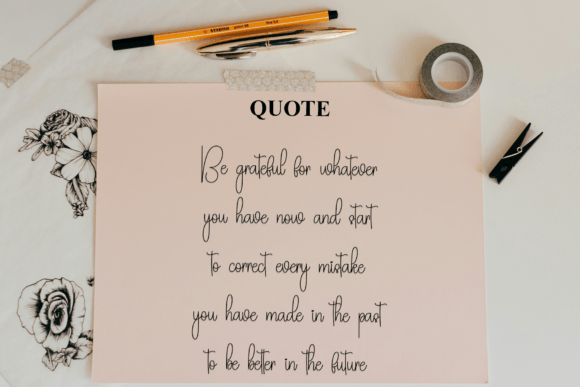 QUOTE
Be grateful for whatever
you have now and start
to correct every mistake
you have made in the past
to be better in the future